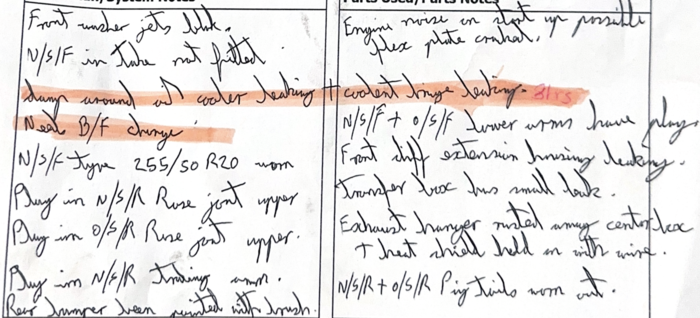 Front washer jets leak.
N/S/F in tube not fitted
damp around oil cooler leaking + coolant hinge leaking. 8hrs
Need B/F change
N/S/F tyre 255/50 R20 worn
Play in N/S/R Rose joint upper
Play in O/S/R Rose joint upper.
Play in N/S/R trailing arm.
Rear bumper been painted with brush.
Parts Used/Parts Notes
Engine noise on start up possible
flex plate
N/S/F + O/S/F lower arms have play.
Front diff extension housing leaking.
transfer box has small leak.
Exhaust hanger rusted away center box
+ heat shield held on with wire.
N/S/R + O/S/R Pig tails worn out.